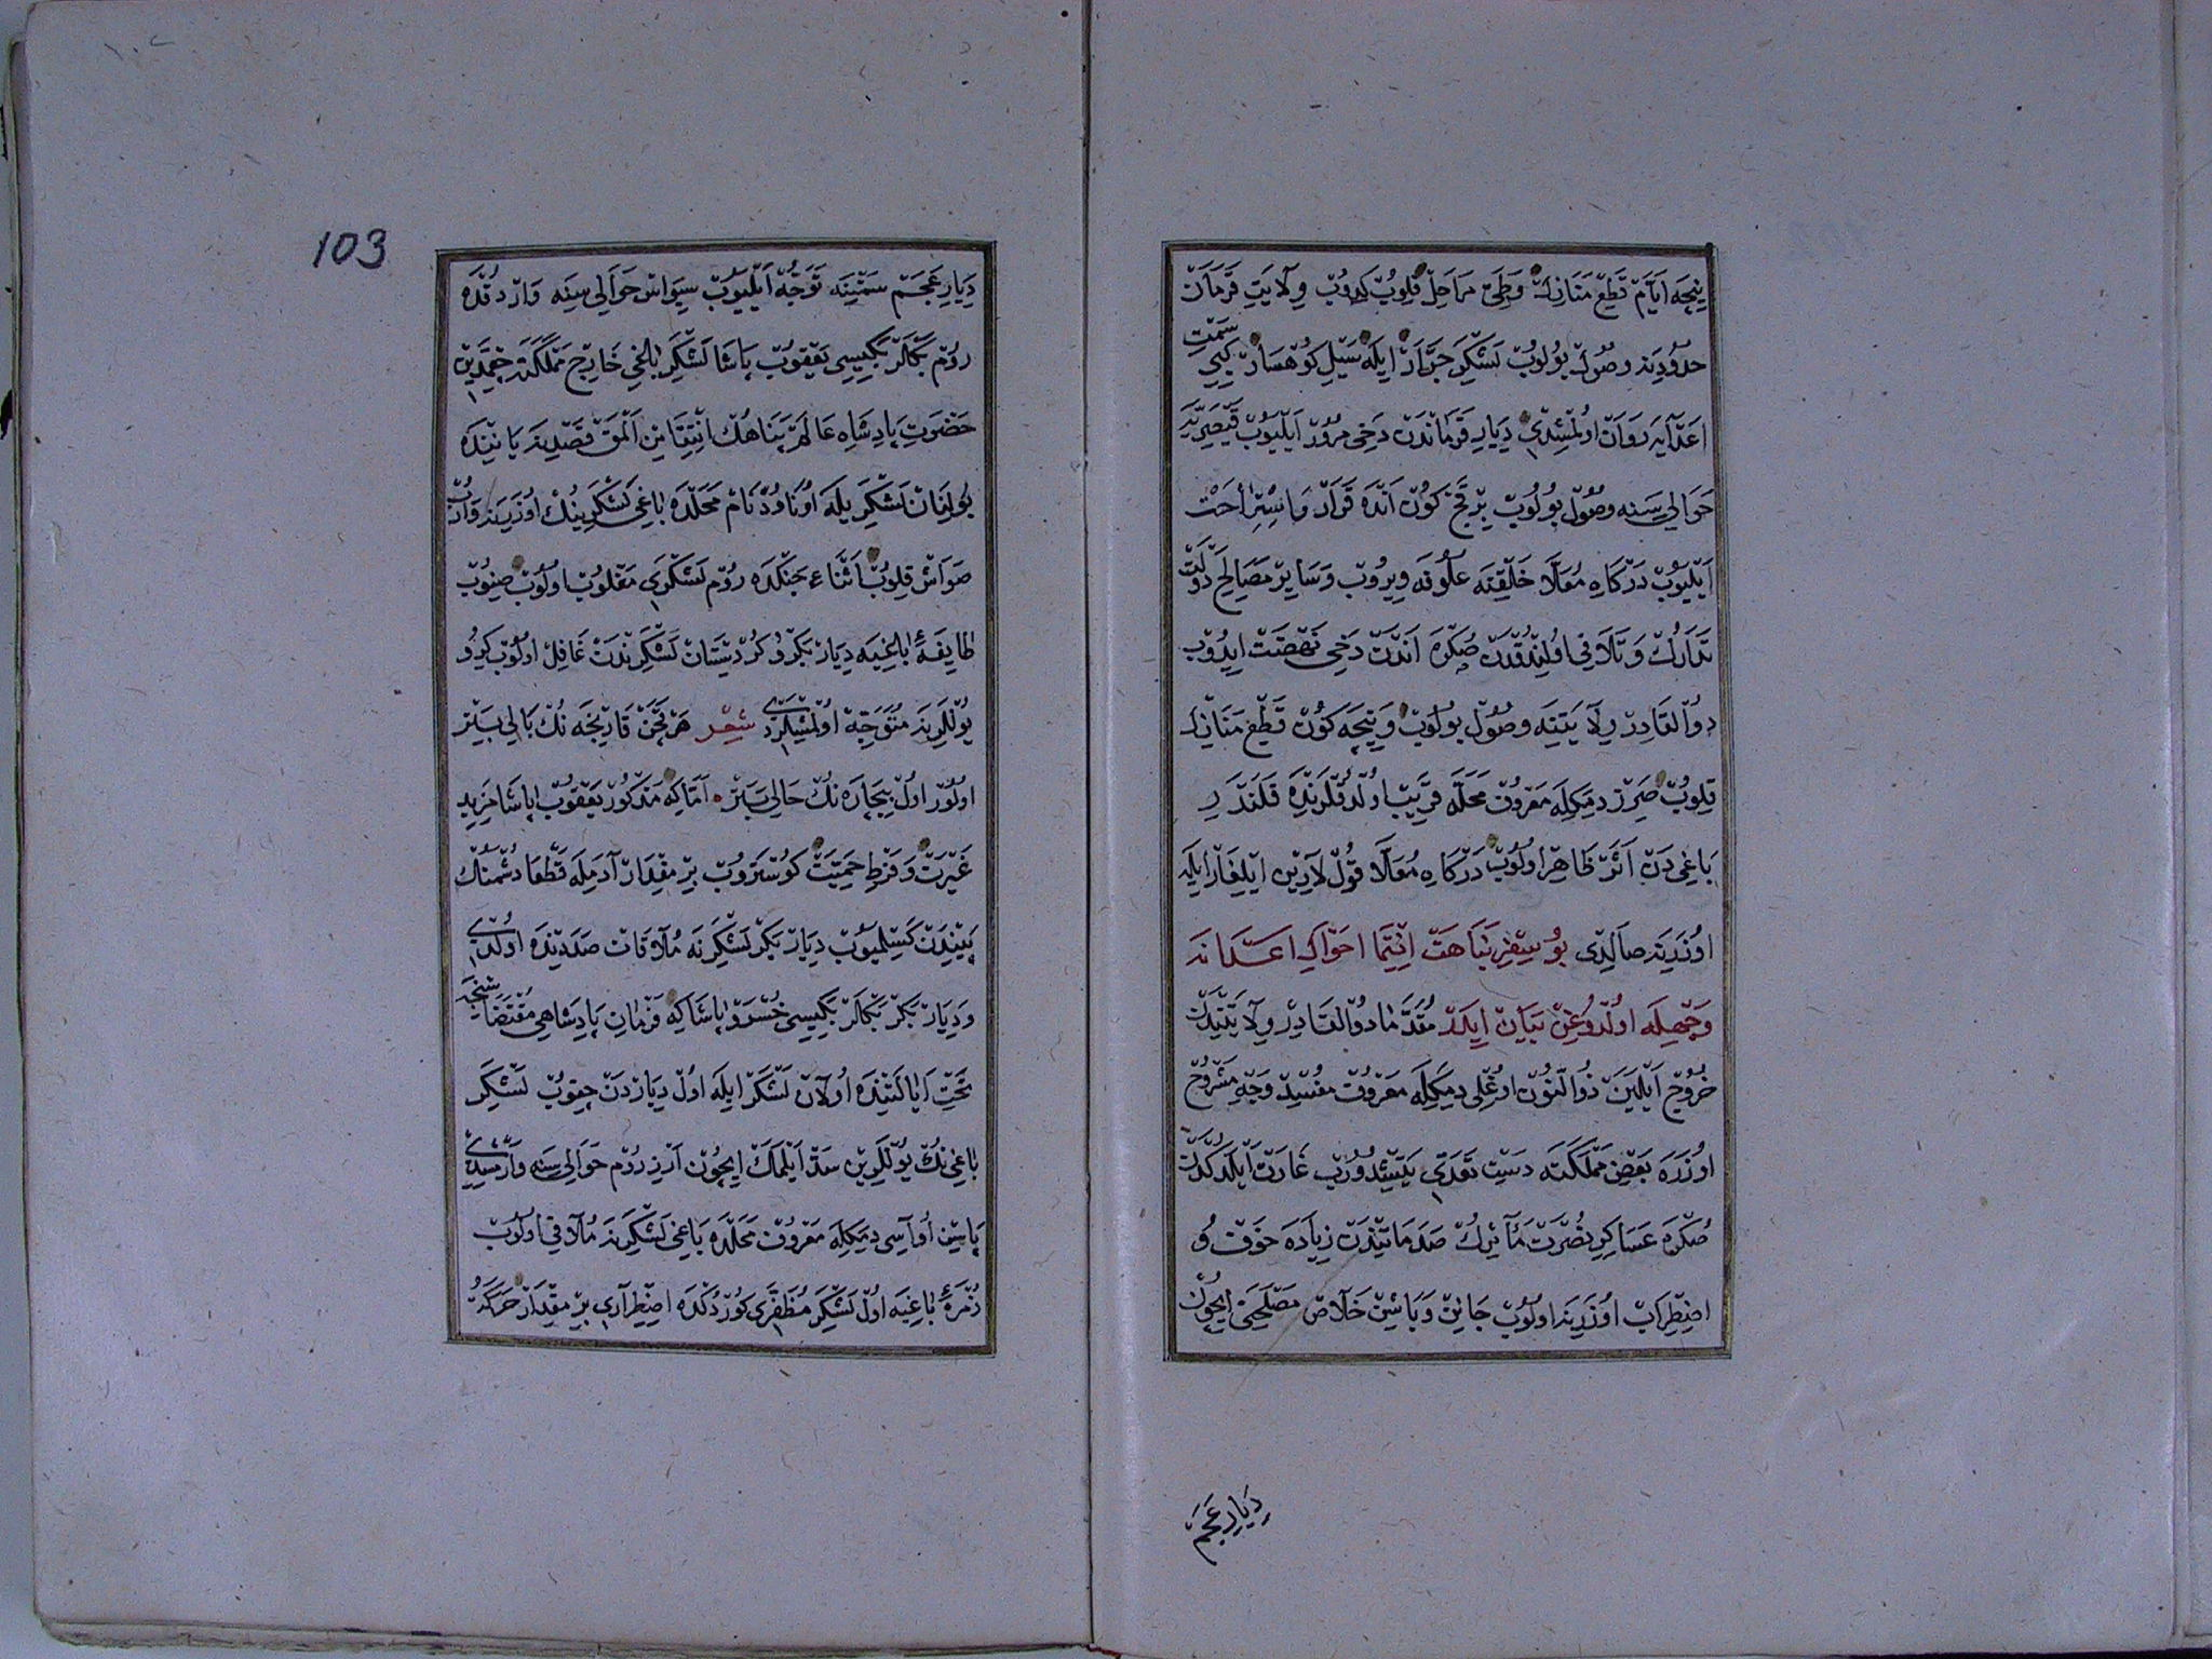 نیجه ایام قطع منازل وطی مراحل قلوب کدوب ولایت قرمان
حدودینه وصول بولوب لشکر جرار ایله سیل کوهسار کبی سمت
اعدایه روان اولمشدی دیار قرماندن دخی مرور ایلیوب قیصریه
حوالیسنه وصول بولوب بر قچ کون انده قرار و استراحت
ایلیوب درکاه معلا خلقنه علوفه ویروب وسایر مصالح دولت
تدارک و تلافی اولندقدن صکره اندن دخی نهضت ایدوب
ذوالقادر ولایتنه وصول بولوب و نیجه کون قطع منازل
قلوب صرز دمکله معروف محله قریب اولدقلرنده قلندر
باغی دن اثر ظاهر اولوب درکاه معلا قوللارین ایلیغار ایله
اوزرینه صالدی بو سفر نباهت انتما احوالی اعدانه
وجهله اولدوغن بیان ایدر مقدما ذوالقادر ولایتندن
خروج ایلین ذوالنون اوغلی دمکله معروف مفسد وجه مشروح
اوزره بعض مملکته دست تعدی یتشدوروب غارت ایلدکدن
صکره عساکر نصرت مآثرک صدماتندن زیاده خوف و
اضطراب اوزرینه اولوب جانین وباشین خلاص مصلحتی ایچون
دیار عجم
103
دیار عجم سمتینه توجه ایلیوب سیواس حوالیسنه واردقده
روم بکلربکیسی یعقوب پاشا لشکر باغی خارج مملکت چقمدین
حضرت پادشاه عالم پناهک انتقامن المق قصدینه یاننده
بولنان لشکر یله اوناود نام محلده باغی لشکرینک اوزرینه واروب
صواش قلوب اثناء جنکده روم لشکری مغلوب اولوب صنوب
طایفهٔ باغیه دیار بکر و کردستان لشکرندن غافل اولوب کیرو
یوللرینه متوجه اولمشلردی شعر هر تحن قاریجه نک بالی بیتر
اولور اول بیچاره نک حالی بتر اما که مذکور یعقوب پاشا مزید
غیرت و فرط حمیت کوستروب بر مقدار آدمله قطعا دشمنک
پیندن کسلمیوب دیار بکر لشکرنه ملاقات صددینده اولدی
ودیار بکر بکلربکیسی خسرو پاشا که فرمان پادشاهی مقتضاسنجه
تحت ایالتنده اولان لشکر ایله اول دیاردن چقوب لشکر
باغی نک یوللرین سد ایلمک ایچون ارزروم حوالیسنه وارمشدی
پاسین اواسی دمکله معروف محلده باغی لشکرینه ملاقی اولوب
زمرهٔ باغیه اول لشکر مظفری کوردکده اضطراری بر مقدار حرکت